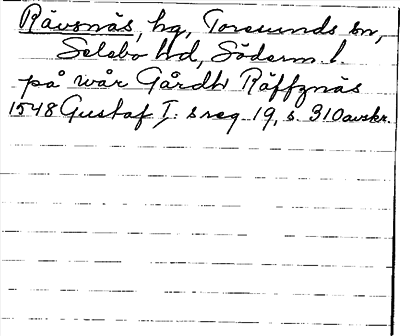 Rävsnäs, hg, Toresunds sn,
Selebo hd, Söderm. l.
på wår Gårdh Räffznäs
1548 Gustaf I: s reg 19, s. 310 avskr.